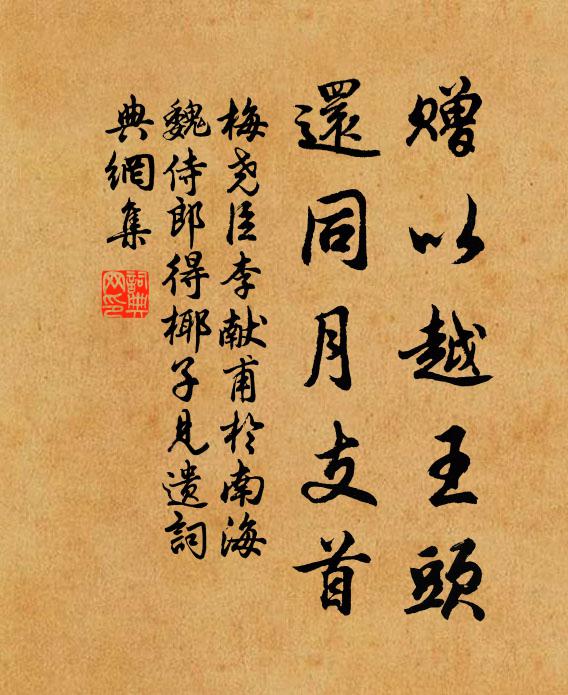 赠以越王頭
還同月支首
梅尧臣李献甫於南海
魏侍郎得椰子見遺詞
典網集
詞典网印